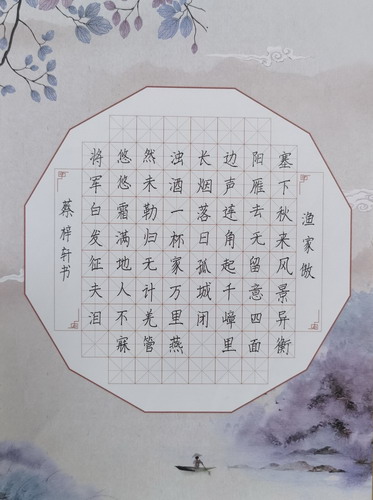 渔家傲
塞下秋来风景异衡
阳雁去无留意四面
边声连角起千嶂里
长烟落日孤城闭
浊酒一杯家万里燕
然未勒归无计羌管
悠悠霜满地人不寐
将军白发征夫泪
蔡梓轩书